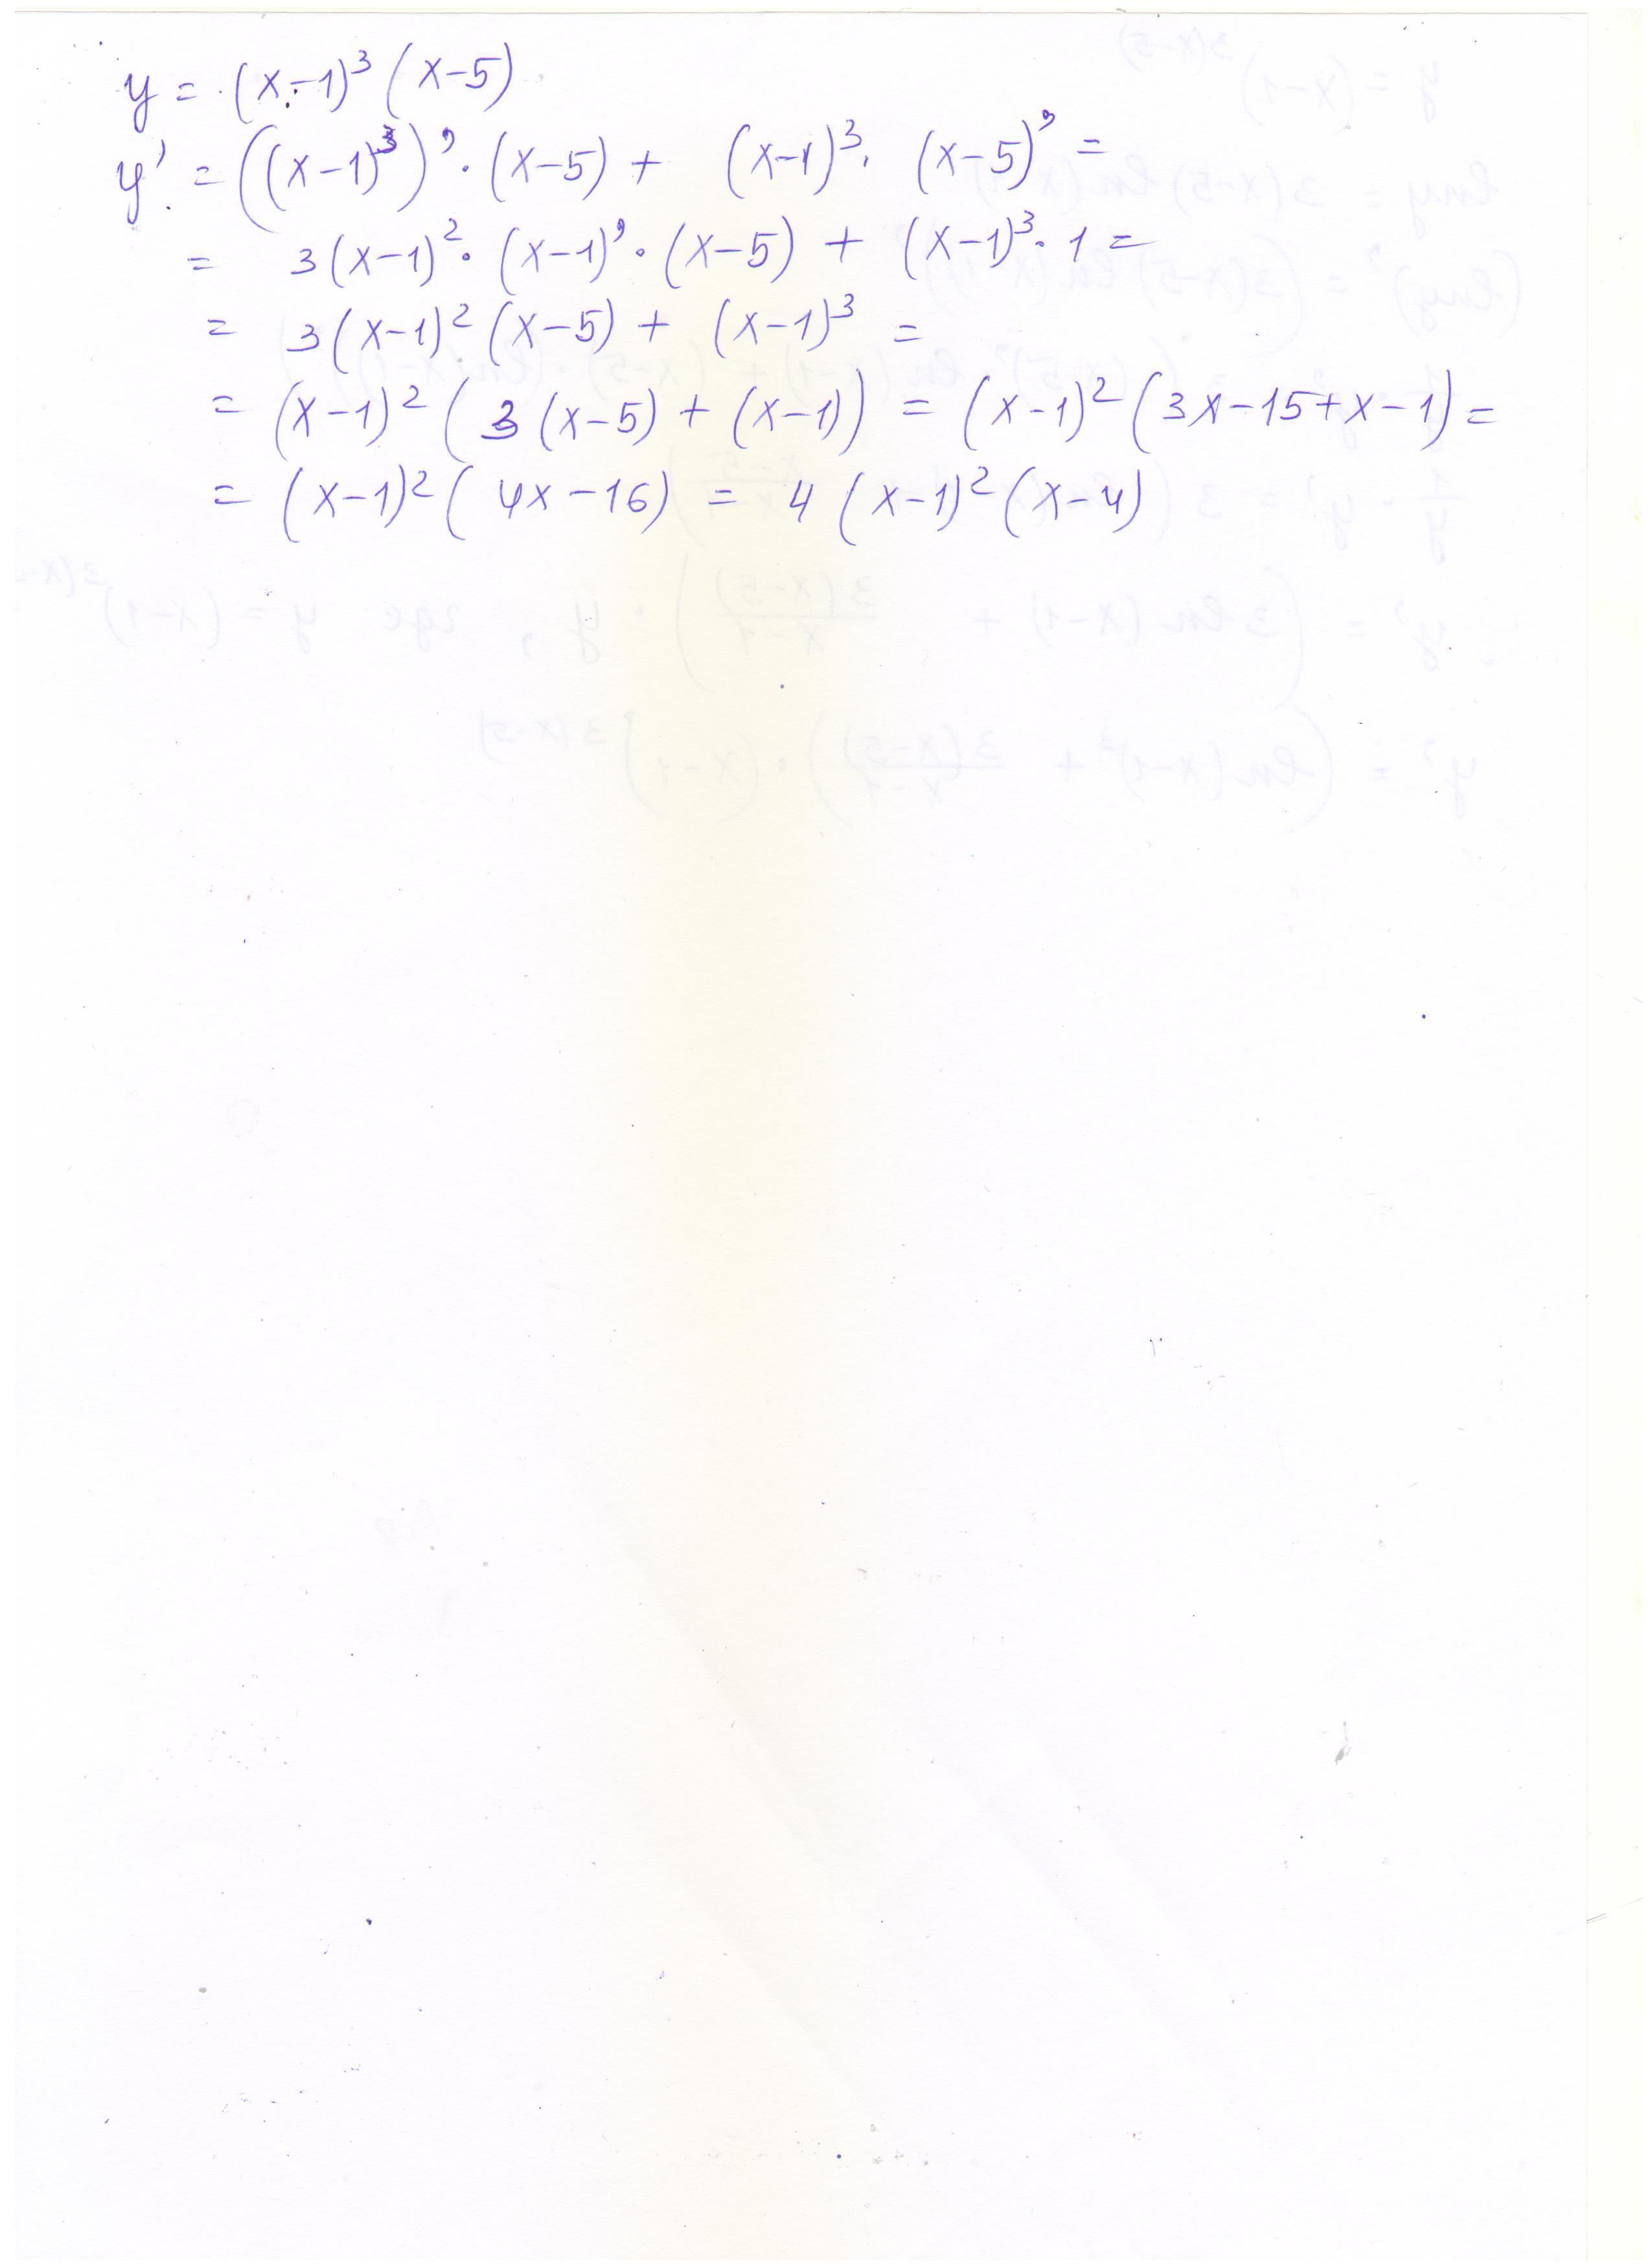 y = (x-1)³ (x-5)
y' = ((x-1)³)' · (x-5) + (x-1)³ · (x-5)' =
= 3(x-1)² · (x-1)' · (x-5) + (x-1)³ · 1 =
= 3(x-1)² (x-5) + (x-1)³ =
= (x-1)² (3(x-5) + (x-1)) = (x-1)² (3x-15+x-1) =
= (x-1)² (4x-16) = 4(x-1)² (x-4)